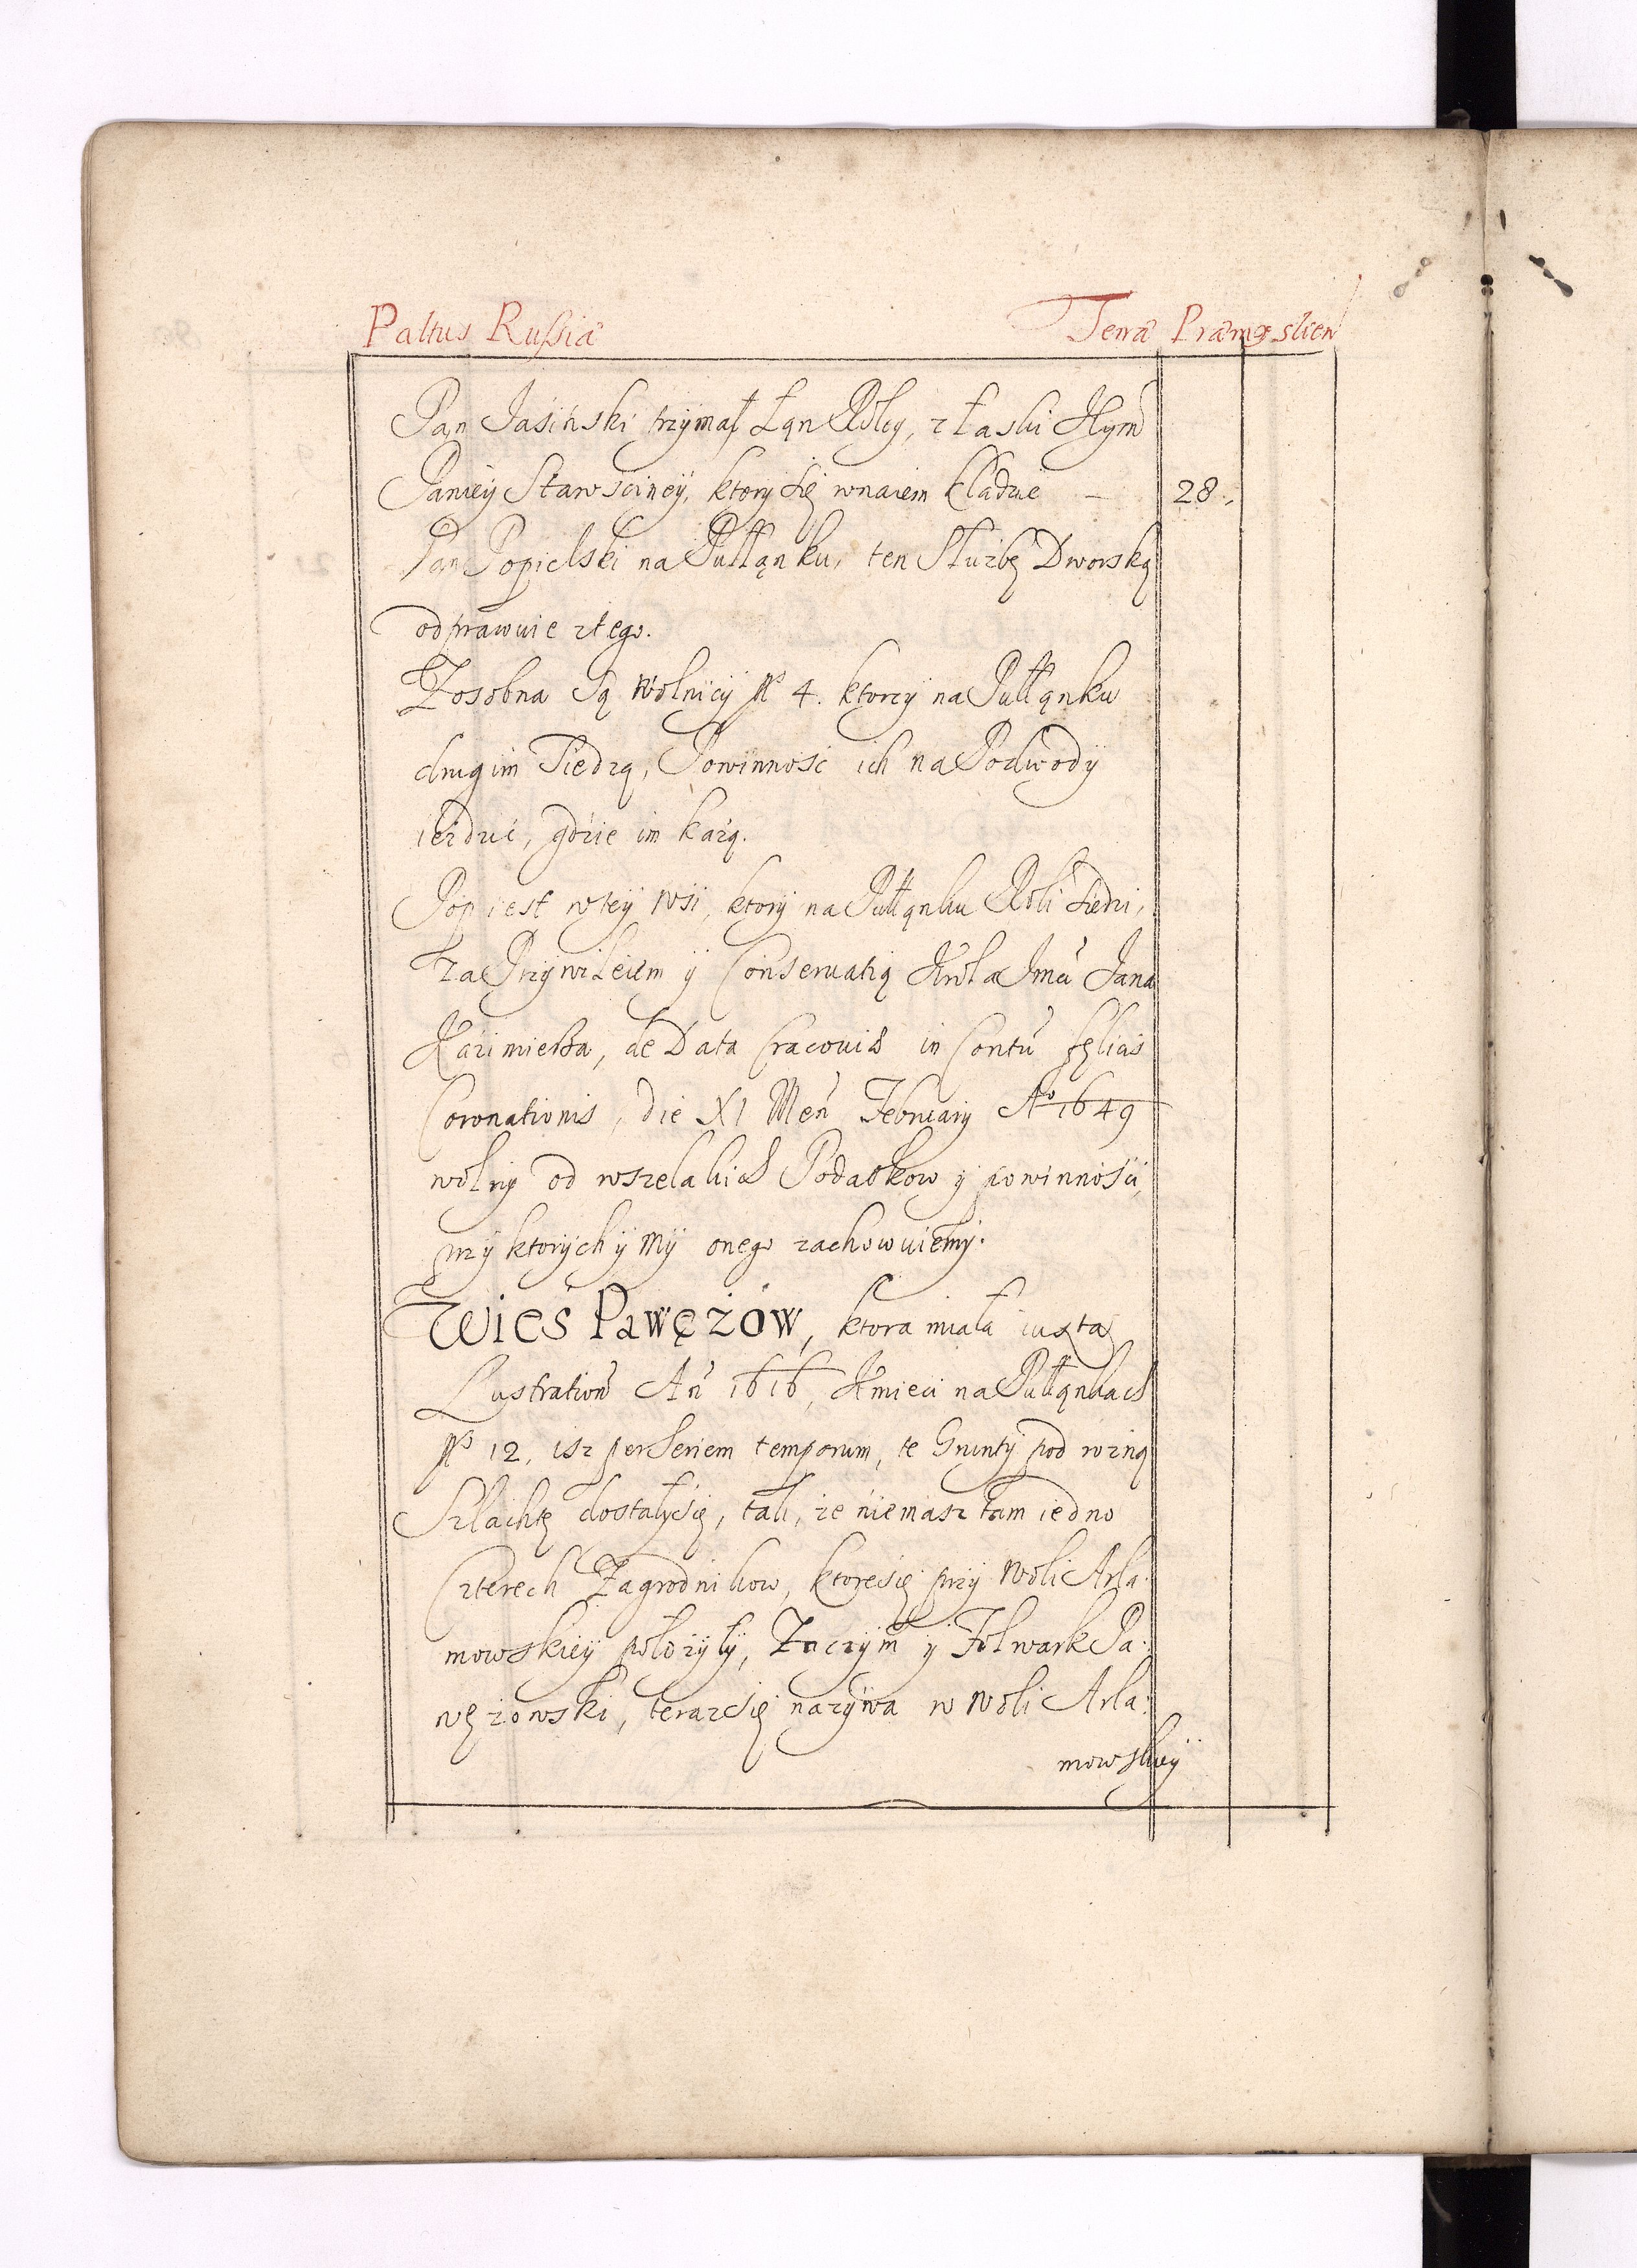 Paltus Rußia Terra Præmyslien
Pan Jasinski trzymał Łąn Roley, z łaski Jeym
Paniey Starosciney, ktory się wnaiem kładzie — 28.
Pan Popielski na Pułłąnku, ten Służbę Dworską
odprawuie ztego.
Zosobna są Wolnicy No 4. ktorzy na Pułłąnku
drugim Siedzą, Powinnosc ich na Podwody
iezdzić, gdzie im każą.
Pop iest wtey wsi, ktory na Pułłąnku Roli siedzi,
za Przywileiem y Conseruatią Krola Jmci Jana
Kazimierza, de Data Cracoviæ in Contu fęlicis
Coronationis, die XI Men February Ao 1649
wolny od wszelakich Podatkow y powinnosci,
przy ktorych y my onego zachowuiemy.
Wieś Pawężow, ktora miała iuxta
Lustration An 1616, Kmieci na Pułłąnkach
No 12, isz per Seriem temporum, te Grunty pod rozną
Szlachtę dostały się, tak, że niemasz tam iedno
Czterech Zagrodnikow, ktorę się przy Woli Arła:
mowskiey położyły, Zaczym y Folwark Pa:
wężowski, teraz się nazywa w Woli Arła:
mowskiey